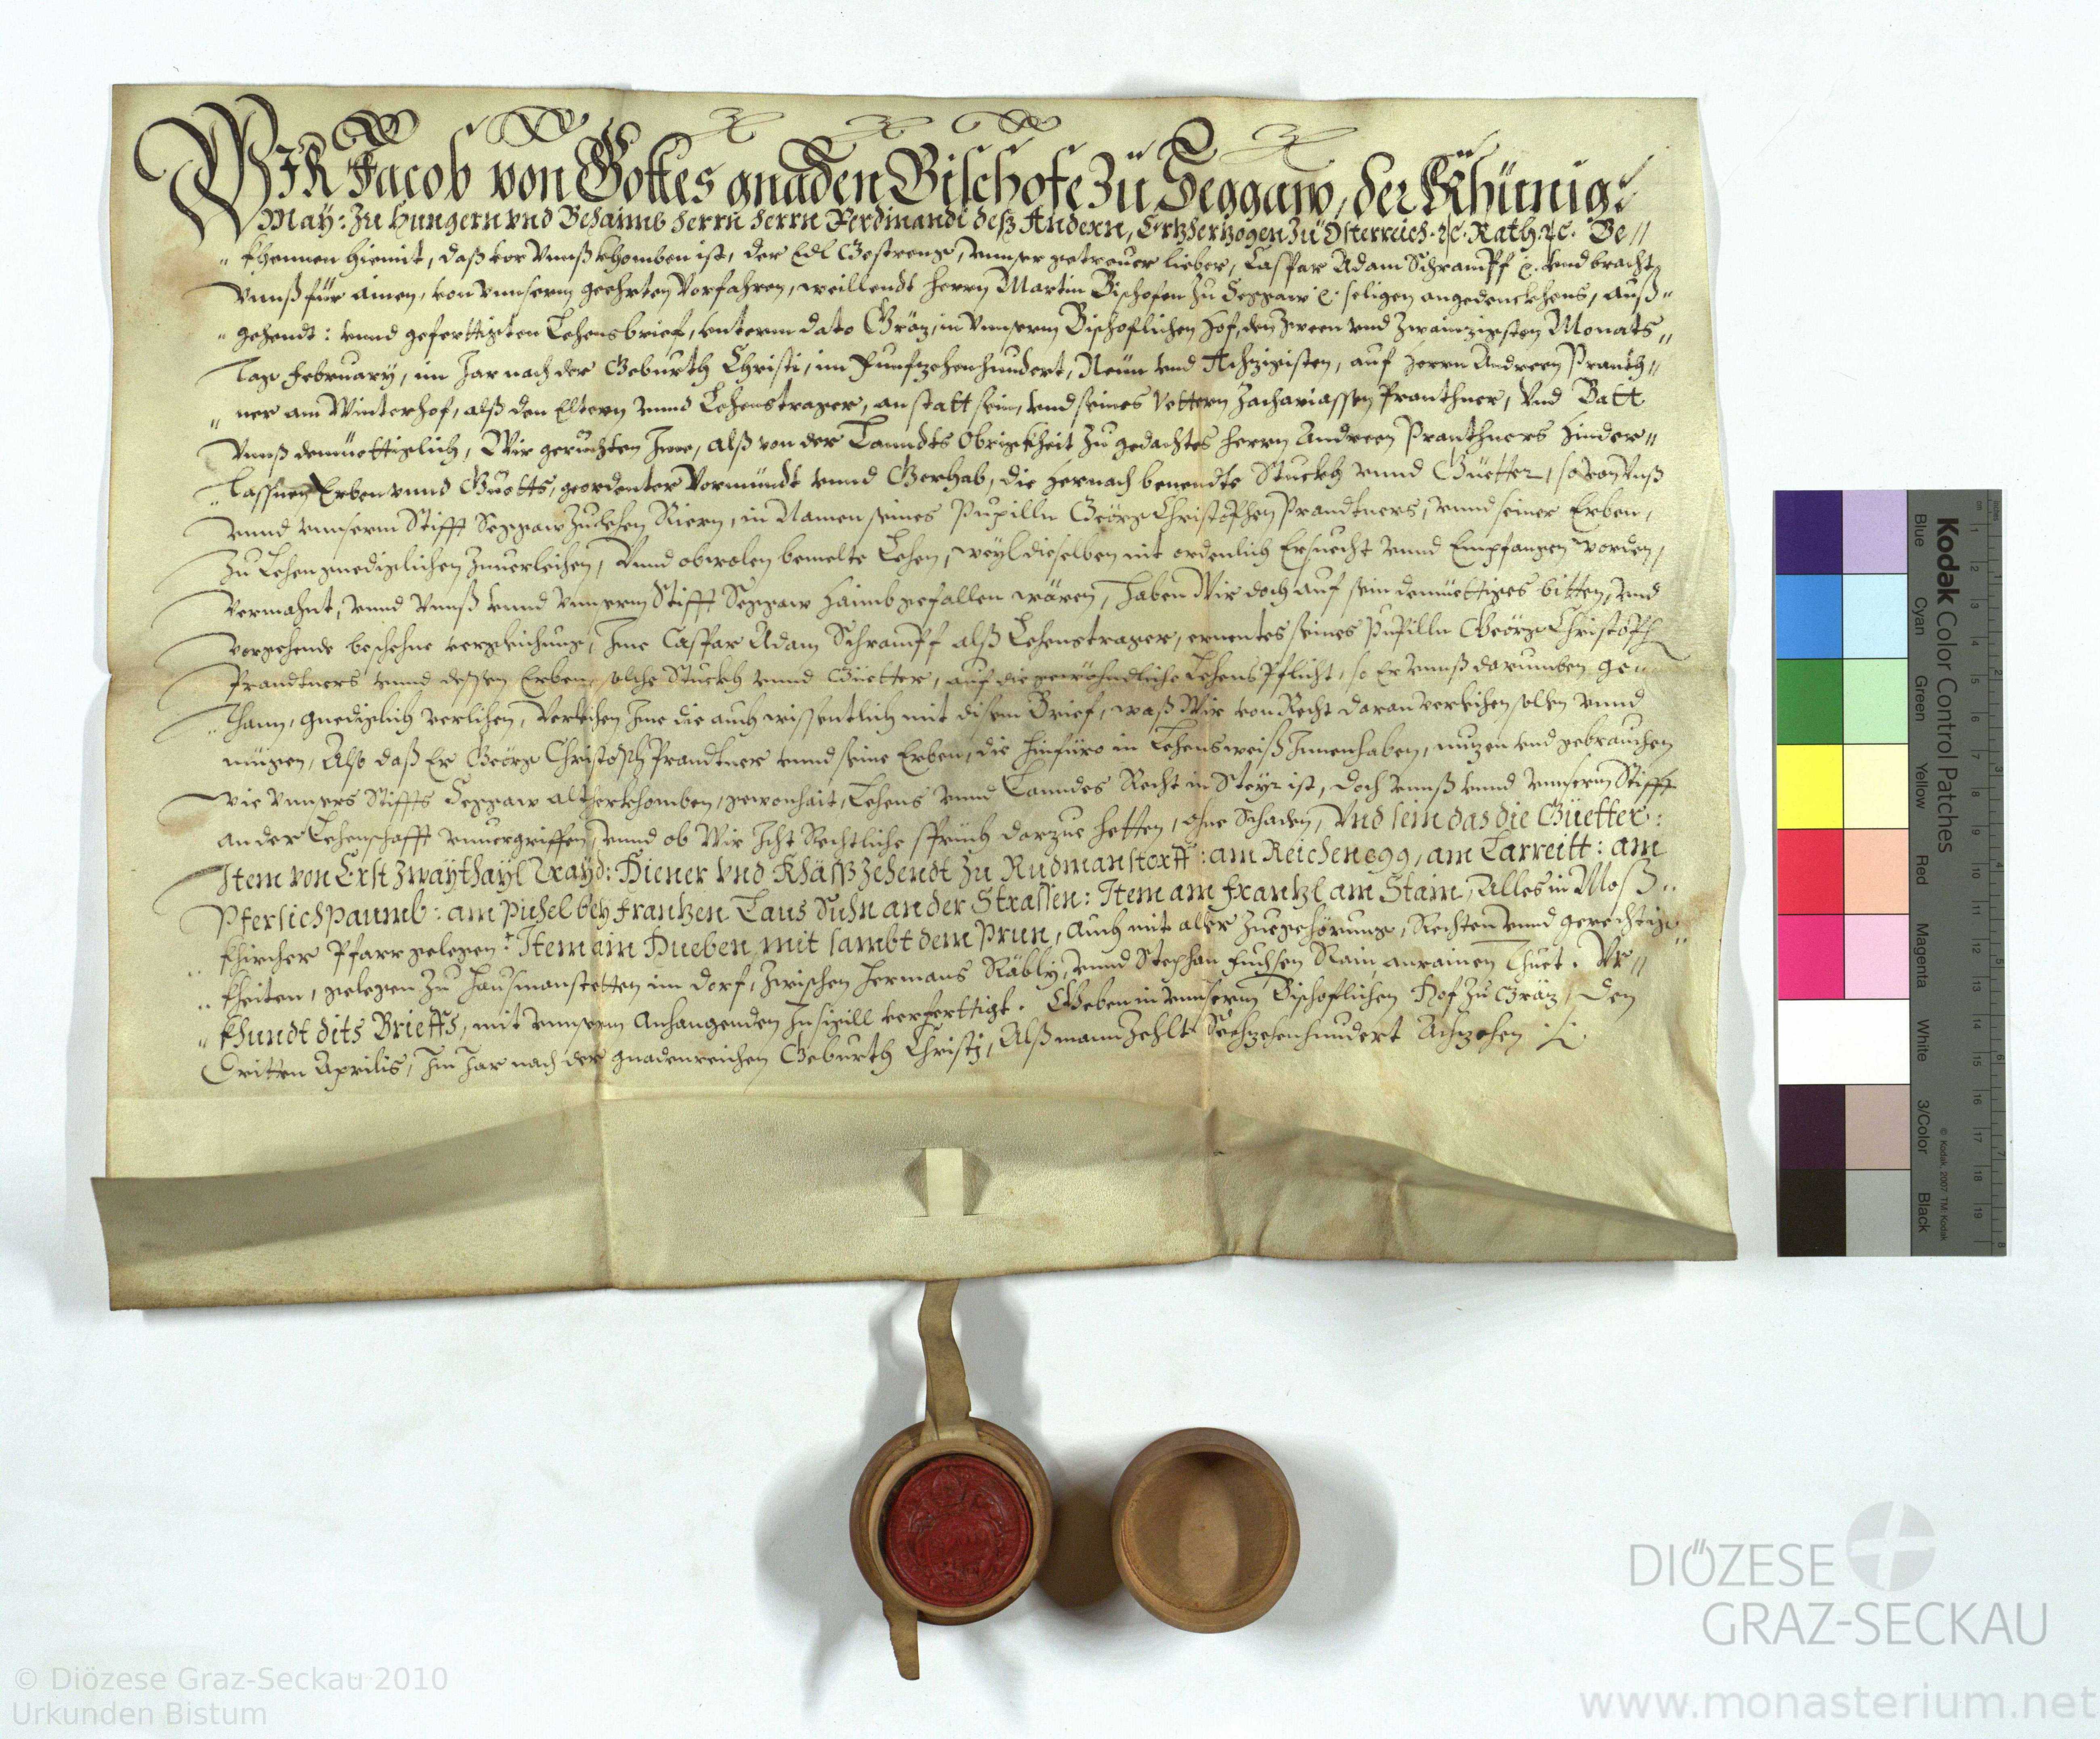 WIR Jacob von Gottes gnaden Bischofe Zu Seggaw, der Khünig:
May: Zu Hungern vnd Behaimb Herrn Herrn Ferdinandi deß Andern, Ertzhertzogen Zu Österreich .:c. Rath :c. Be //
khennen hiemit, daß vor Vnnß khomben ist, der Edl Gestrenge, vnnser getreuer lieber, Caspar Adam Schrampff :c. vnd bracht
Vnnß für ainen, von vnnserm geehrten Vorfahren, weillendt Herrn Martin Bischofen Zu Seggaw :c. seligen angedenckhens, auß //
gehendt: vnnd geferttigten Lehensbrief, vnterm dato Gräz, in Vnnserm Bischoflichen Hof, den Zween vnd Zwainzigsten Monats //
Tag February, im Jar nach der Geburth Christi, im Funfzehenhundert, Neün vnd Achzigisten, auf Herrn Andreen Pranth //
ner am Winterhof, alß den Eltern vnnd Lehenstrager, anstatt sein, vnd seines Vettern Zachariassen Pranthner, Vnd Batt
Vnnß demüettiglich, Wir geruchten Jme, alß von der Lanndts Obrigkheit Zu gedachtes Herrn Andreen Pranthners Hinder //
lassnen Erben vnnd Guetts, geordenter Vormündt vnnd Gerhab, die hernach benendte Stuckh vnnd Güetter, so von Vnß
vnnd vnnserm Stifft Seggaw Zu Lehen Riern, in Namen seines Pupilln Geörg Christophen Prandtners, vnnd seiner Erben,
Zu Lehen genediglichen Zuuerleihen, Vnnd obwolen bemelte Lehen, weyl dieselben nit ordenlich Ersuecht vnnd Empfangen worden,
Vermahnt, vnnd Vnnß vnnd Vnnserm Stifft Seggaw haimb gefallen wären, Haben Wir doch auf sein demüettiges bitten, vnd
vorgehende beschehne vergleichung, Jme Caspar Adam Schrampff alß Lehenstrager, ernentes seines Pupilln Geörg Christoph
Prandtners vnnd dessen Erben, solche Stuckh vnnd Güetter, auf die gewöhndliche Lehens Pflicht, so Er vnnß darumben ge
thann, gnediglich verlihen, Verleihen Jme die auch wissentlich mit disem Brief, waß Wir von Recht daran verleihen sollen vnnd
mügen, Also daß Er Geörg Christoph Prandtner vnnd seine Erben, die hinfüro in Lehensweiß Jnnenhaben, nutzen vnd gebrauchen
wie vnnsers Stiffts Seggaw altherkhomben, gewonhait, Lehens vnnd Lanndes Recht in Steyr ist, doch vnnß vnnd vnnserm Stifft
an der Lehenschafft vnuergriffen, vnnd ob Wir Jcht Rechtliche Sprüch darzue hetten, ohne Schaden, Vnd sein das die Güetter:
Jtem von Erst Zwaythayl Trayd: Hiener vnd Khäß Zehendt Zu Rudmanstorff: am Reichenegg, am Larreitt: am
Pfersichpaumb: am Pichel bey Frantzen Laus Suhn an der Strassen: Jtem am Frantzl am Stain, Alles in Moß ..
khircher Pfarr gelegen: Jtem ain Hueben mit sambt dem Prun, Auch mit aller Zuegehörung, Rechten vnnd gerechtig
kheiten, gelegen Zu Hausmanstetten im Dorf, Zwischen Hermans Räbly, vnnd Stephan Fuchsen Rain anrainen Thuet. Vr //
khundt dits Brieffs, mit vnnserm Anhangenden Jnsigill verferttigt. Geben in vnnserm Bischoflichen Hof Zu Gräz, Den
Dritten Aprilis, Jm Jar nach der gnadenreichen Geburth Christj, Alß mann Zehlt Sechzehenhundert Achzehen
Kodak Color Control Patches
Blue Cyan Green Yellow Red Magenta White 3/Color Black
© Kodak, 2007 TM: Kodak
DIÖZESE
GRAZ-SECKAU
© Diözese Graz-Seckau 2010
Urkunden Bistum
www.monasterium.net